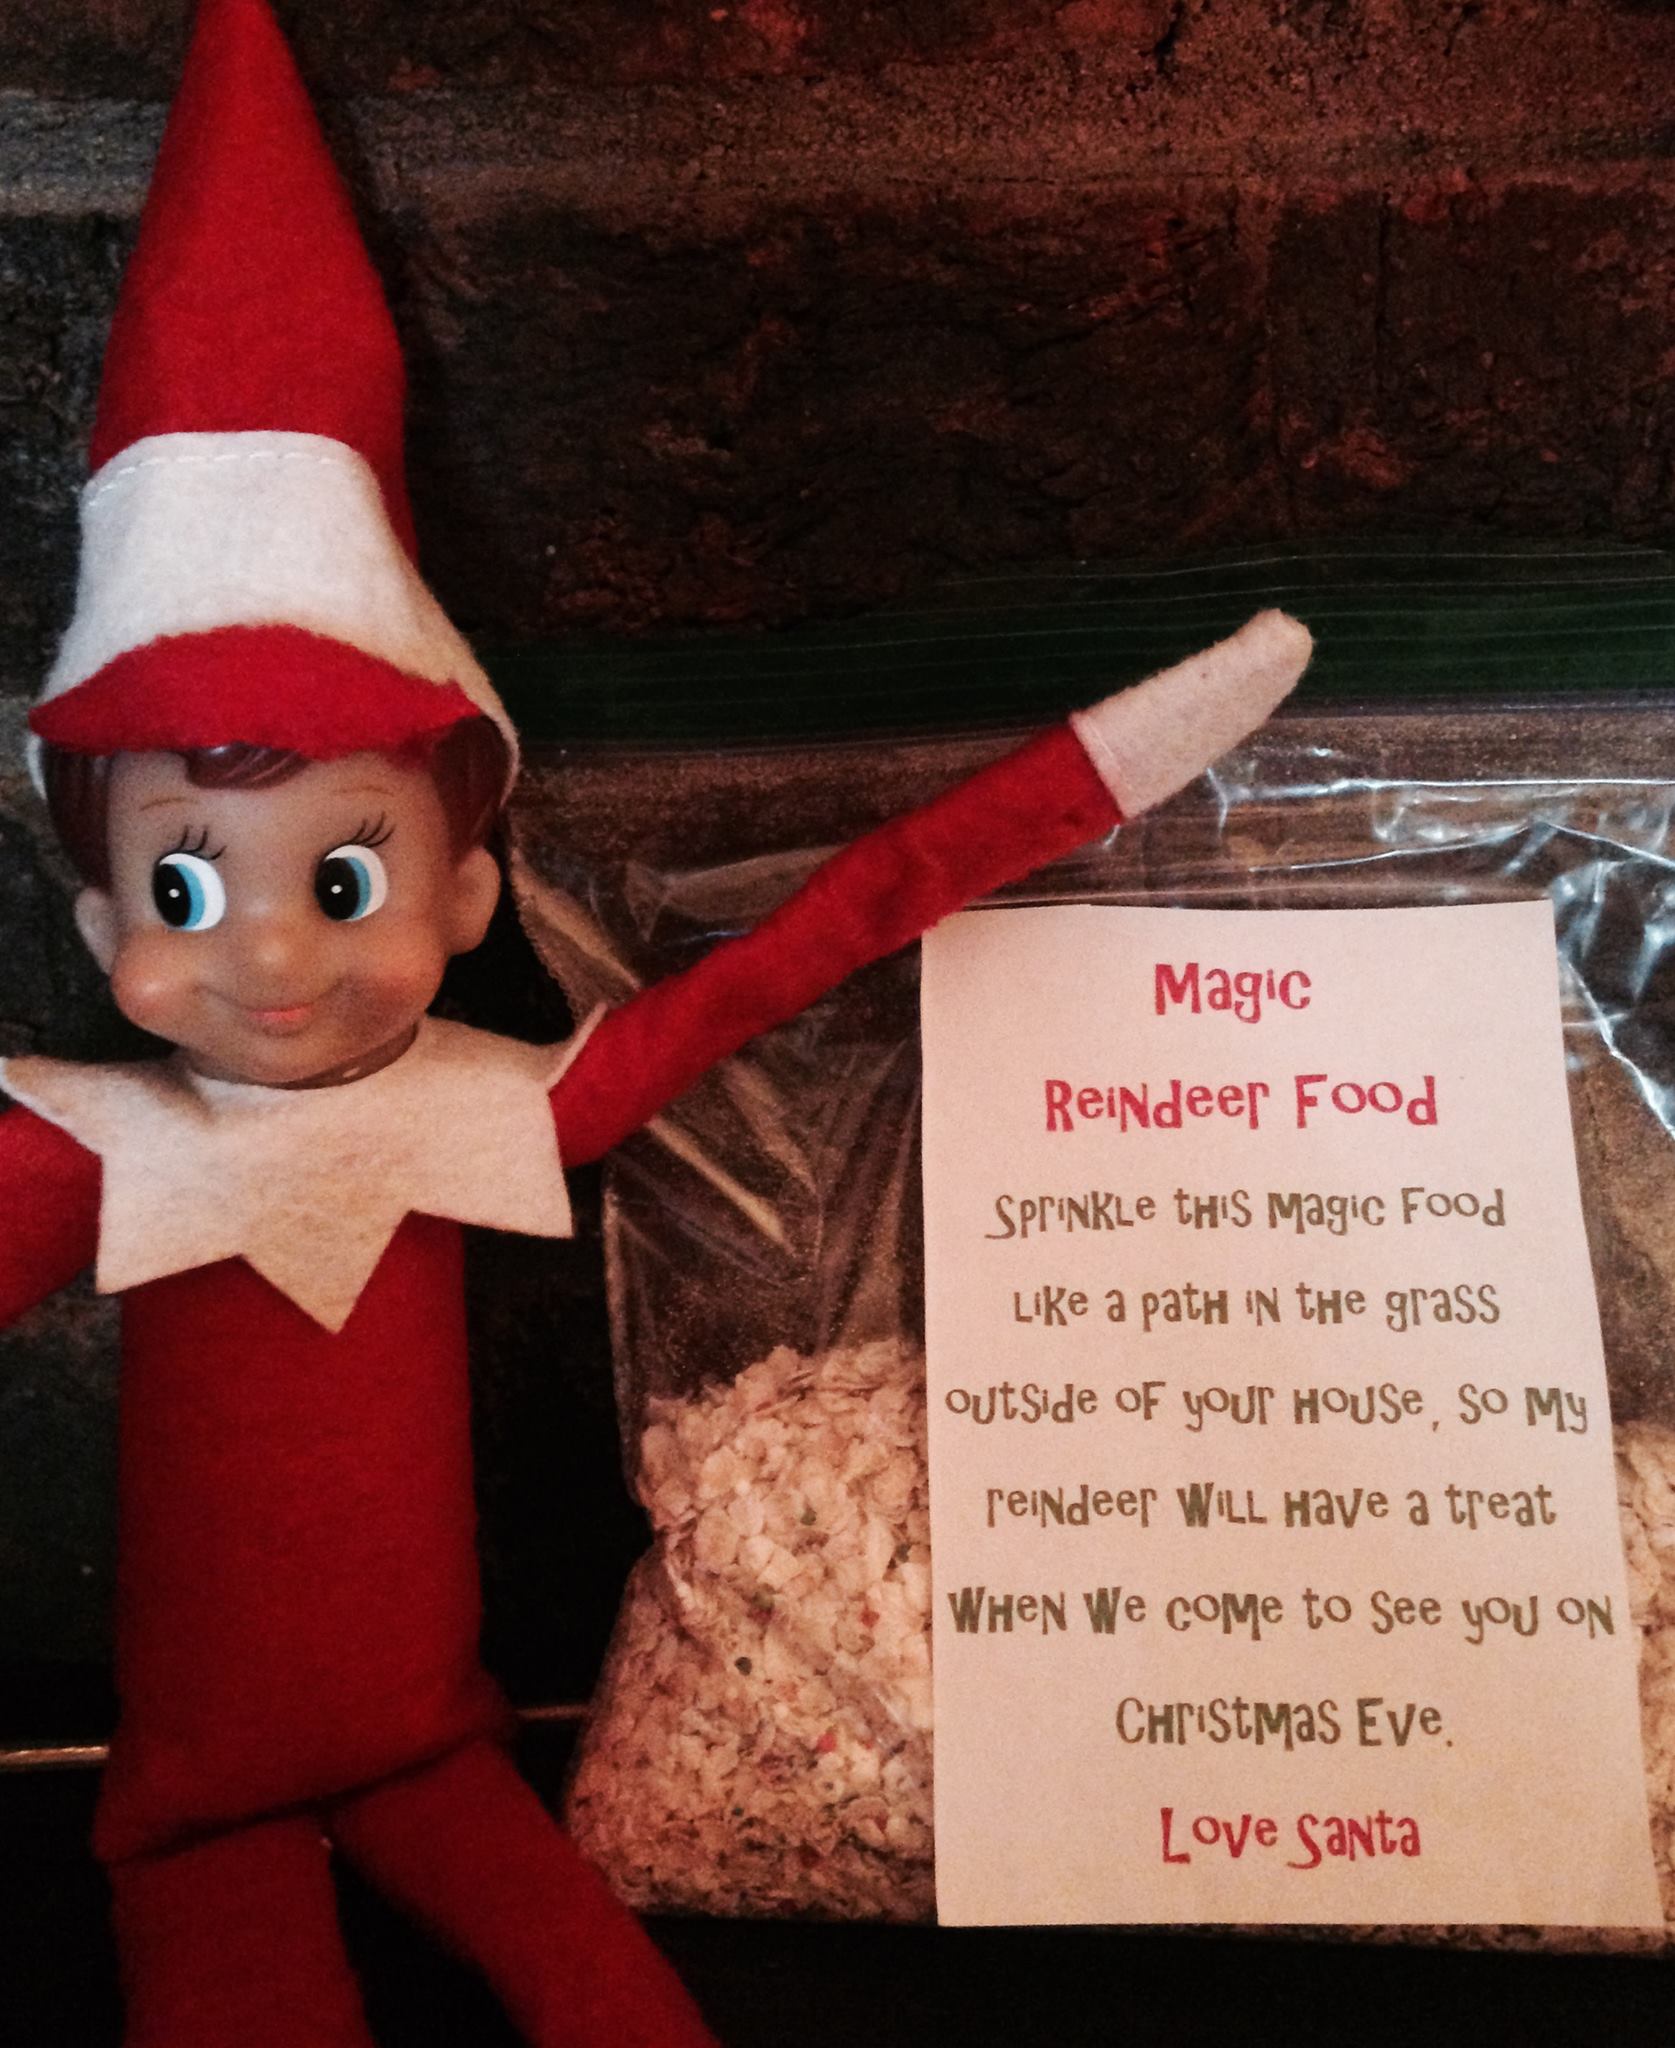 Magic
Reindeer Food
Sprinkle this Magic Food
Like a path in the grass
outside of your House, so My
reindeer Will Have a treat
When We come to see you on
Christmas Eve.
Love Santa